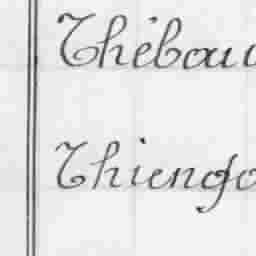 Thébau
Thiengo